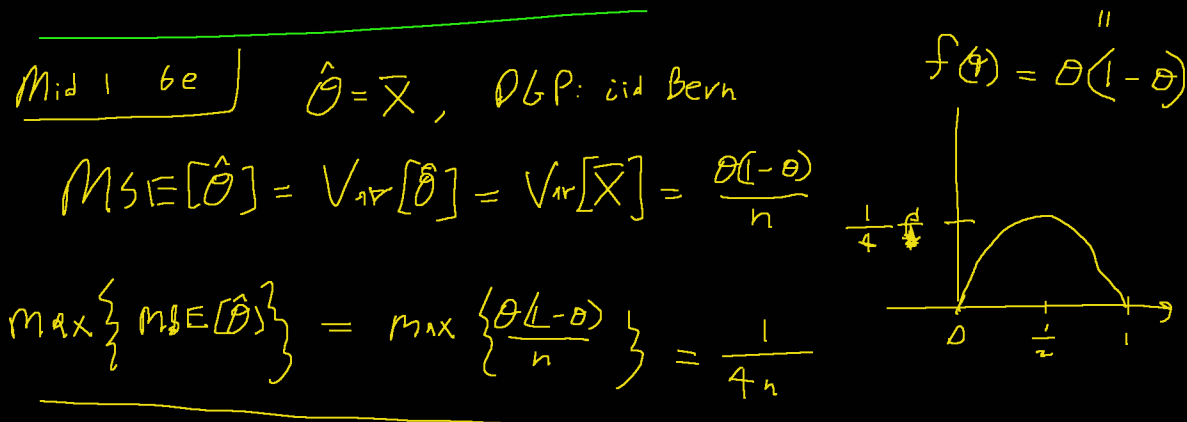 Mid 1 6e θ̂ = X̄, DGP: iid Bern
MSE[θ̂] = Var[θ̂] = Var[X̄] = θ(1-θ)/n
max{MSE[θ̂]} = max{θ(1-θ)/n} = 1/4n
"
f(θ) = θ(1-θ)
1/4
0 1/2 1